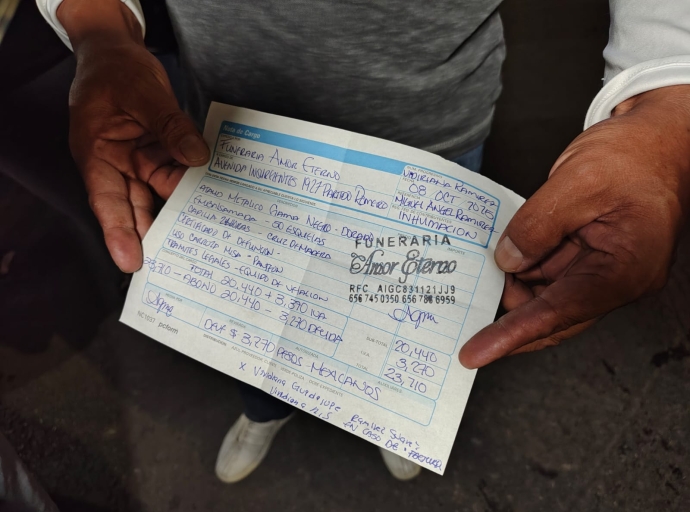 Nota de Cargo
FUNERARIA AMOR ETERNO
AVENIDA INSURGENTES 1927 PARTIDO ROMERO
VIDIRIANA RAMIREZ
08 OCT 2025
MIGUEL ANGEL RAMIREZ
INHUMACIÓN
METALICO GAMA NEGRO - DORADO
EMBALSAMADA - 50 ESQUELAS
CAPILLA - CRUZ DE MADERA
CERTIFICADO DE DEFUNCION
USO CARROZA MISA - PANTEON
TRAMITES LEGALES - EQUIPO DE VELACION
TOTAL 20,440 + 3,270 IVA
- ABONO 20,440 - 3,270 DEUDA
FUNERARIA
Amor Eterno
RFC AIGC831121JJ9
656 745 0350 656 786 6959
SUB-TOTAL 20,440
3,270
TOTAL 23,710
NC1037 pcform
DEUE $ 3,270 PESOS MEXICANOS
X Viridiana Guadalupe
EN CASO DE FACTURA